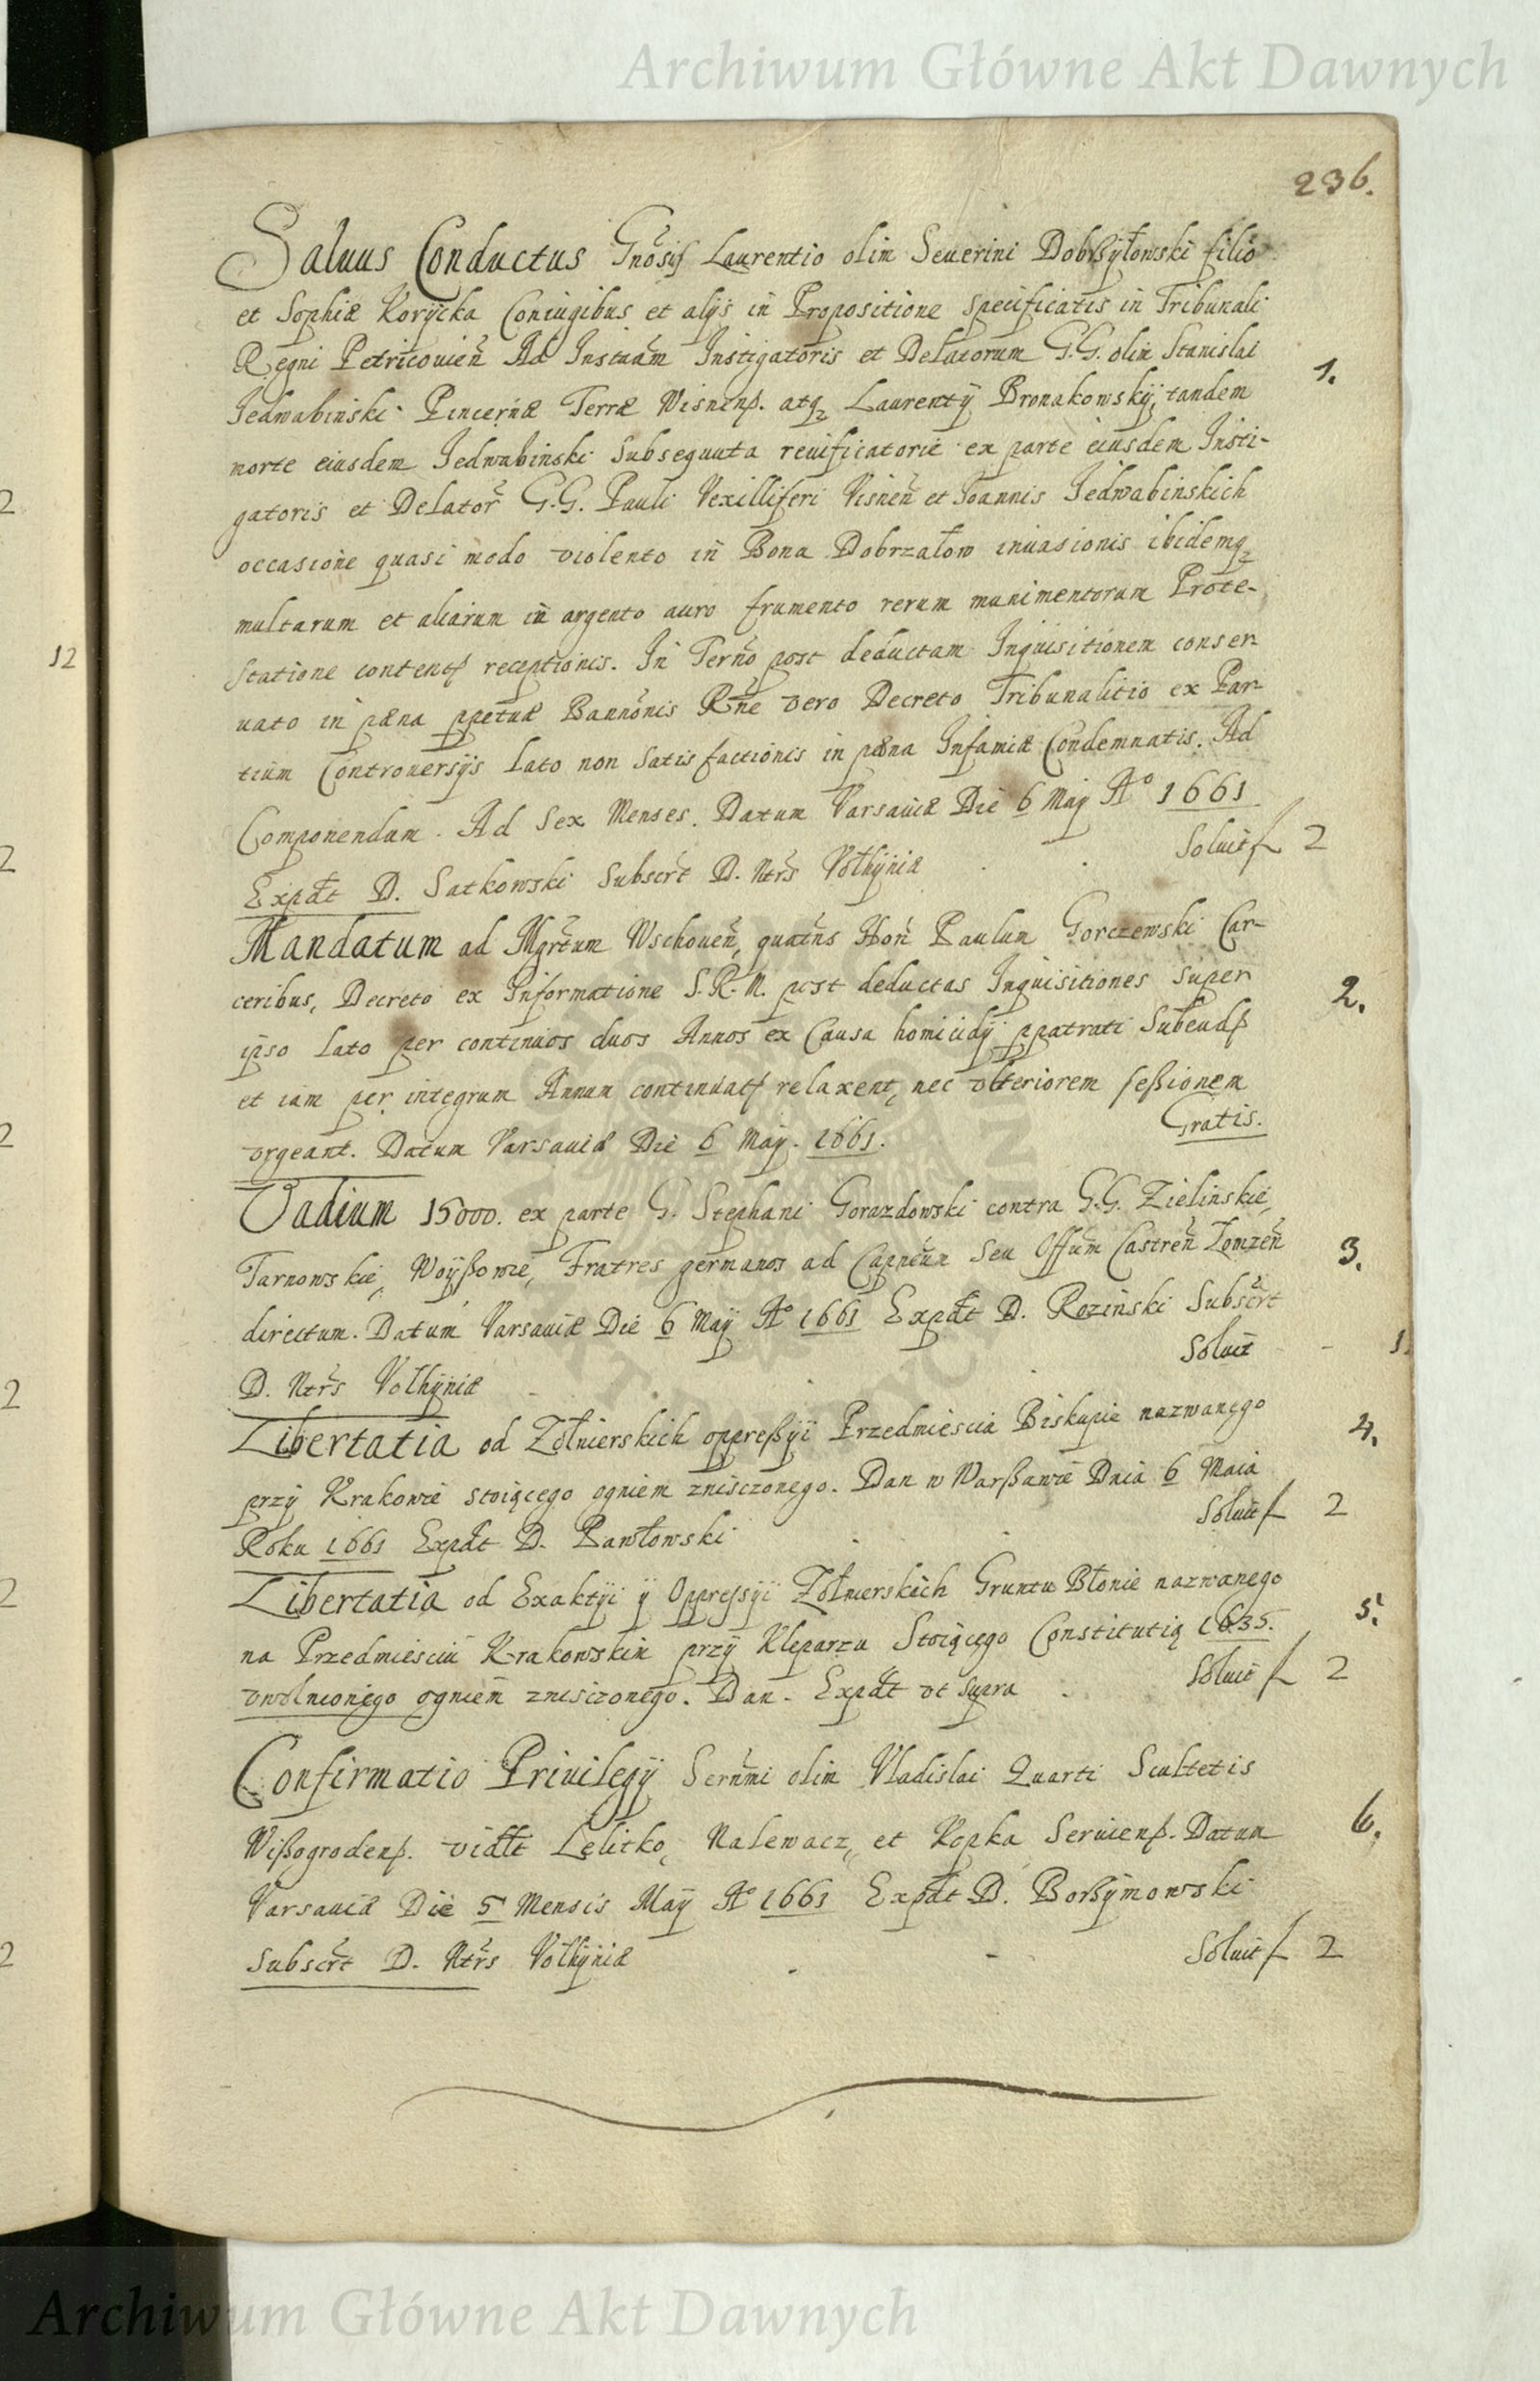 Archiwum Główne Akt Dawnych
236.
Saluus Conductus Gnosis Laurentio olim Seuerini Dobrßyłowski filio
et Sophiæ Korycka Coniugibus et alijs in Propositione specificatis in Tribunali
Regni Petricouien Ad Instam Instigatoris et Delatorum G.G. olim Stanislai
1.
Jedwabinski Pincernæ Terræ Wisnenß. atq Laurentÿ Bronakowskÿ, tandem
morte eiusdem Jedwabinski subsequuta reuificatorie ex parte eiusdem Insti-
gatoris et Delator G.G. Pauli Vexilliferi Visnen et Joannis Jedwabinskich
2
occasione quasi modo violento in Bona Dobrzałow inuasionis ibidemq
multarum et aliarum in argento auro frumento rerum munimentorum Prote-
statione content receptionis. In Terno post deductam Inquisitionem conser-
12
uato in pæna ppetuæ Bannonis Rne vero Decreto Tribunalitio ex Par-
tium Controuersijs lato non satisfactionis in pæna Infamiæ Condemnatis. Ad
Componendum. Ad Sex Menses. Datum Varsauiæ Die 6 Maÿ Aº 1661
Expdt D. Satkowski Subscrt D. Ntrs Volhÿniæ
Soluit f 2
2
Mandatum ad Mgrtum Wschouen, quatns Hon Paulum Gorczewski Car-
ceribus, Decreto ex Informatione S.R.M. post deductas Inquisitiones super
2.
ipso lato per continuos duos Annos ex Causa homicidÿ ppatrati Subeundß
et iam per integrum Annum continuatß relaxent, nec vlteriorem seßionem
vrgeant. Datum Varsauiæ Die 6 Maÿ. 1661.
Gratis.
2
Vadium 15000. ex parte G. Stephani Gorazdowski contra G.G. Zielinskie,
Tarnowskie, Woÿßowie, Fratres germanos ad Capneum Seu Offum Castren Łomzen
3.
directum. Datum Varsauiæ Die 6 Maÿ Aº 1661 Expdt D. Rozinski Subscrt
D. Ntrs Volhÿniæ
Soluit
1.
2
Libertatia od Zołnierskich oppreßÿi Przedmiescia Biskupie nazwanego
4.
przÿ Krakowie stoiącego ogniem znisczonego. Dan w Warßawie Dnia 6 Maia
Roku 1661 Expdt D. Pawłowski
Soluit f 2
Libertatia od Exaktÿi ÿ Oppressÿi Zołnierskich Gruntu Błonie nazwanego
2
5.
na Przedmiesciu Krakowskim przÿ Kleparzu Stoiącego Constitutią 1635.
vwolnionego ogniem znisczonego. Dan. Expdt vt supra
Soluit f 2
Confirmatio Priuilegÿ Sernmi olim Vladislai Quarti Scultetis
Wißogrodenß. vidlt Lelitko, Nalewacz, et Kępka Seruienß. Datum
6.
Varsauiæ Die 5 Mensis Maÿ Aº 1661 Expdt D. Borßÿmowski
Subscrt D. Ntrs Volhÿniæ
Soluit f 2
2
Archiwum Główne Akt Dawnych